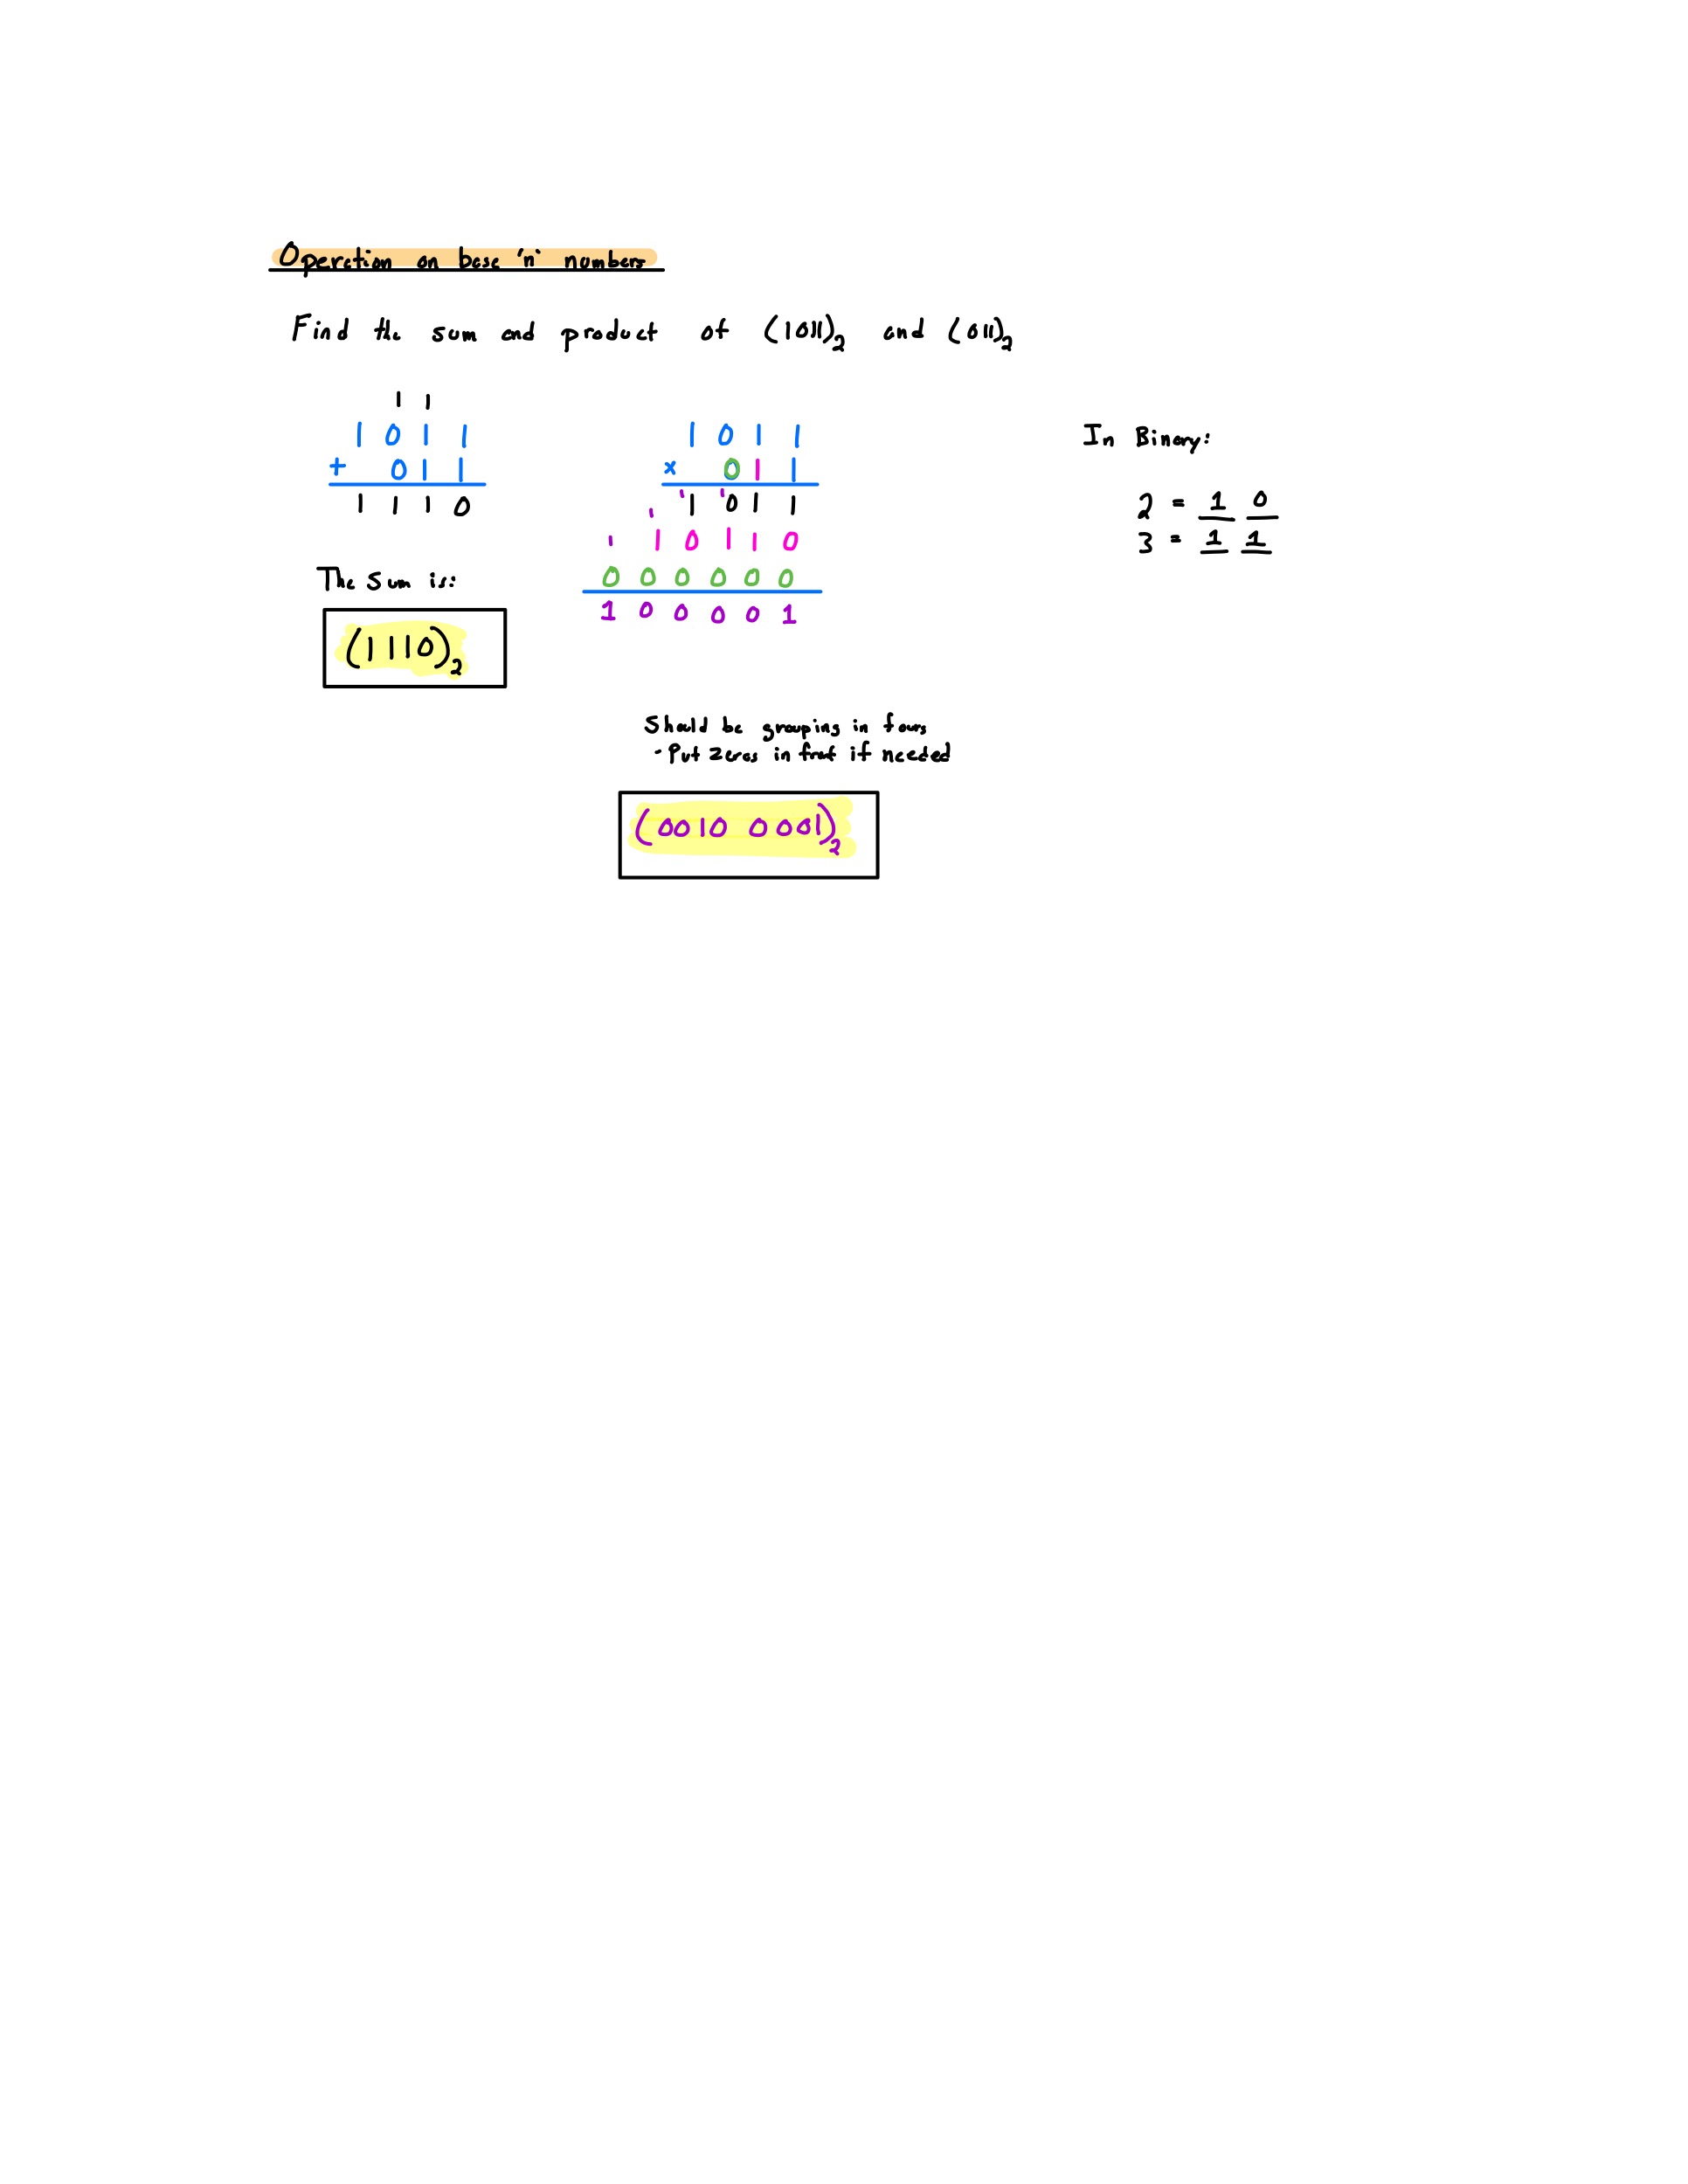 Operation on base 'n' numbers
Find the sum and product of (1011)2 and (011)2
1 1
1 0 1 1
+ 0 1 1
1 1 1 0
The sum is:
(1110)2
1 0 1 1
x 0 1 1
1 1
1 0 1 1
1
1 1 0 1 1 0
0 0 0 0 0 0
1 0 0 0 0 1
Should be grouping in fours
- Put zeros in front if needed
(0010 0001)2
In Binary:
2 = 1 0
3 = 1 1